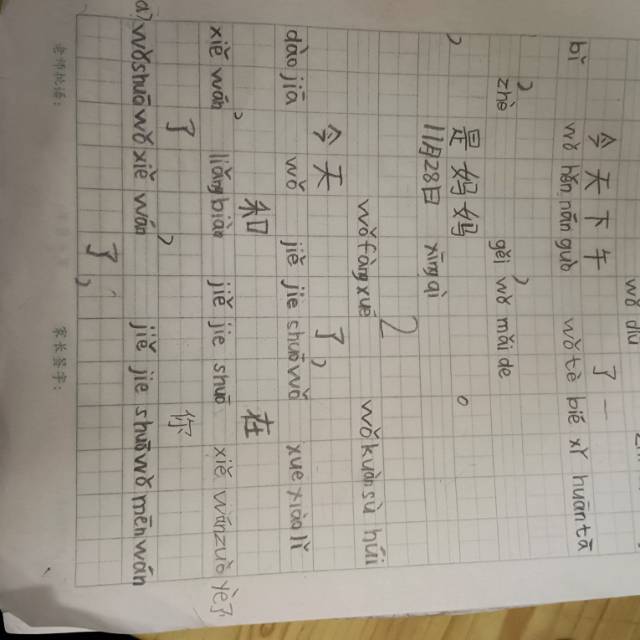 wǒ diū
今天下午 了一
bǐ wǒ hěn nán guò wǒ tè bié xǐ huān tā
zhè gěi wǒ mǎi de
，是妈妈 。
11月28日 xīngqī
2
wǒ fàng xué wǒ kuài sù húi
今天 了，
dào jiā wǒ jiě jie shuō wǒ xué xiào lǐ
和 在
xiě wán liǎng biàn jiě jie shuō xiě wán zuò yè了
了， 你
wǒ shuō wǒ xiě wán jiě jie shuō wǒ mēn wán
了，
家长签字：